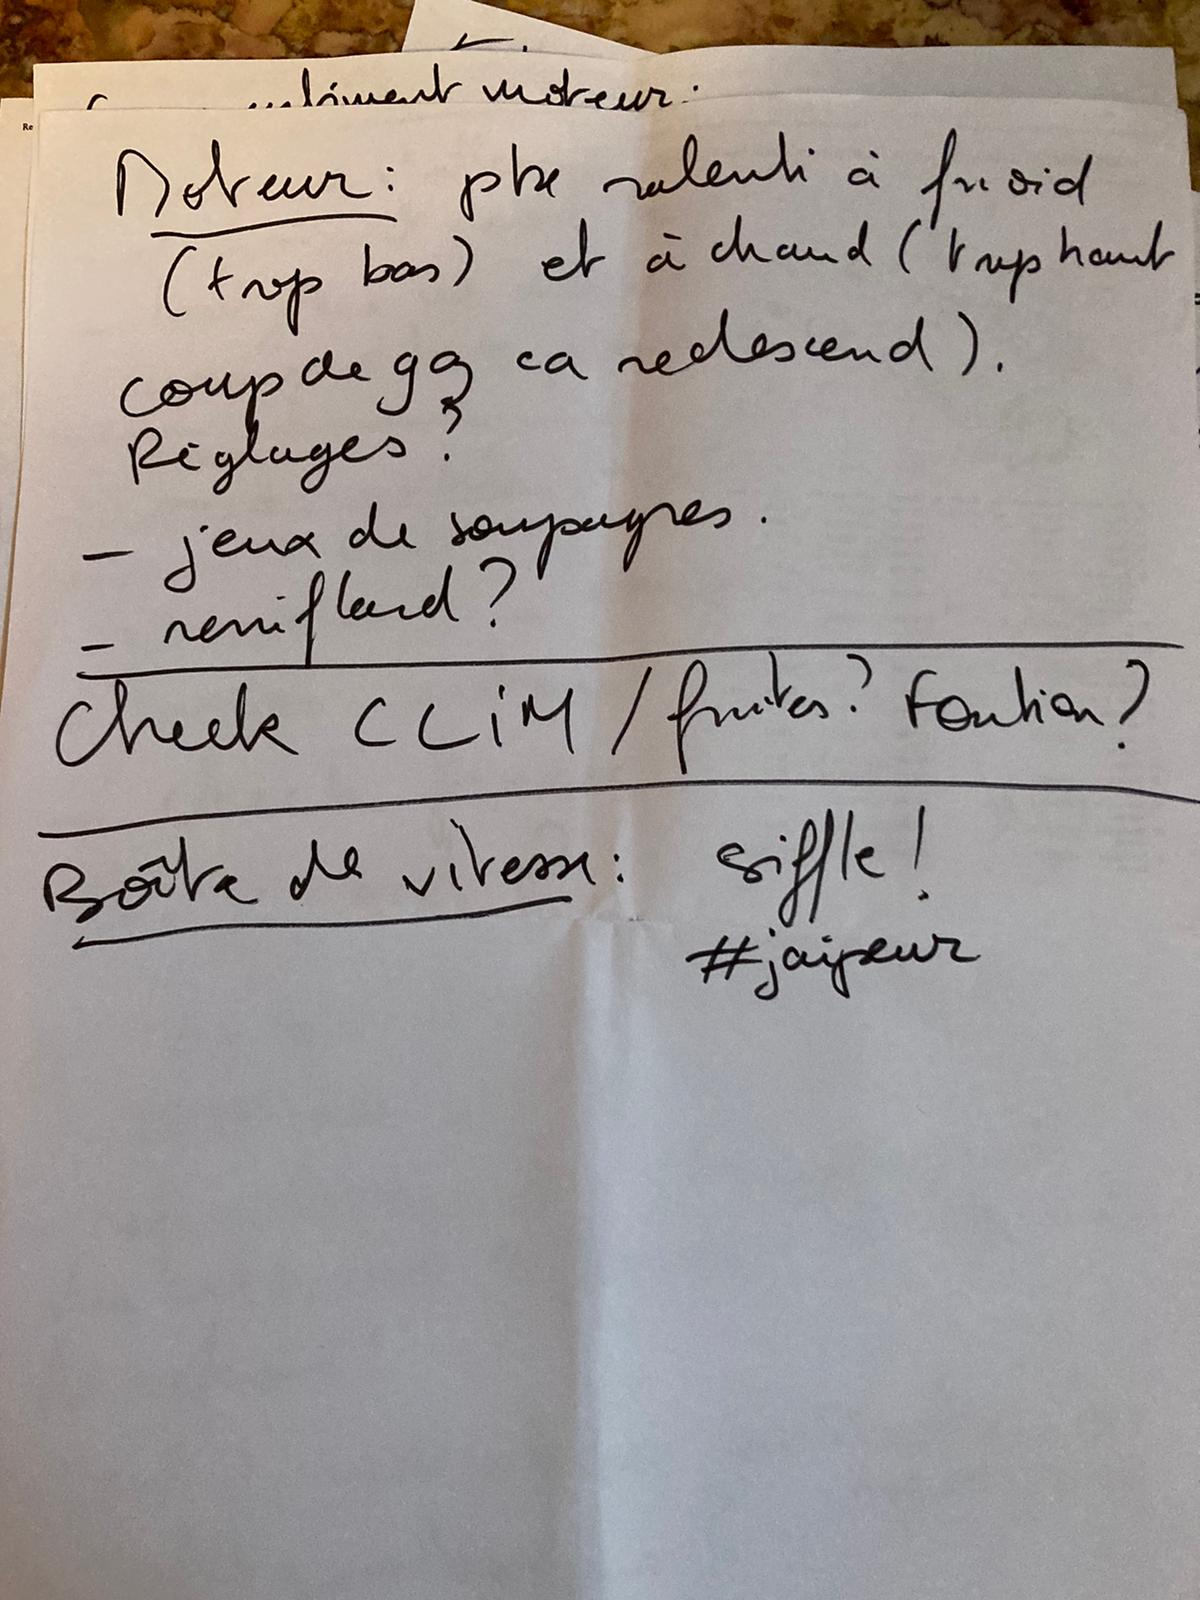 moteur :
Re
Moteur : pbe ralenti à froid
(trop bas) et à chaud (trop haut
coup de gaz ca redescend).
Réglages ?
- jeux de soupapes.
- reniflard ?
Check CLiM / fuites ? Fontion ?
Boîte de vitesse : siffle !
#jaipeur